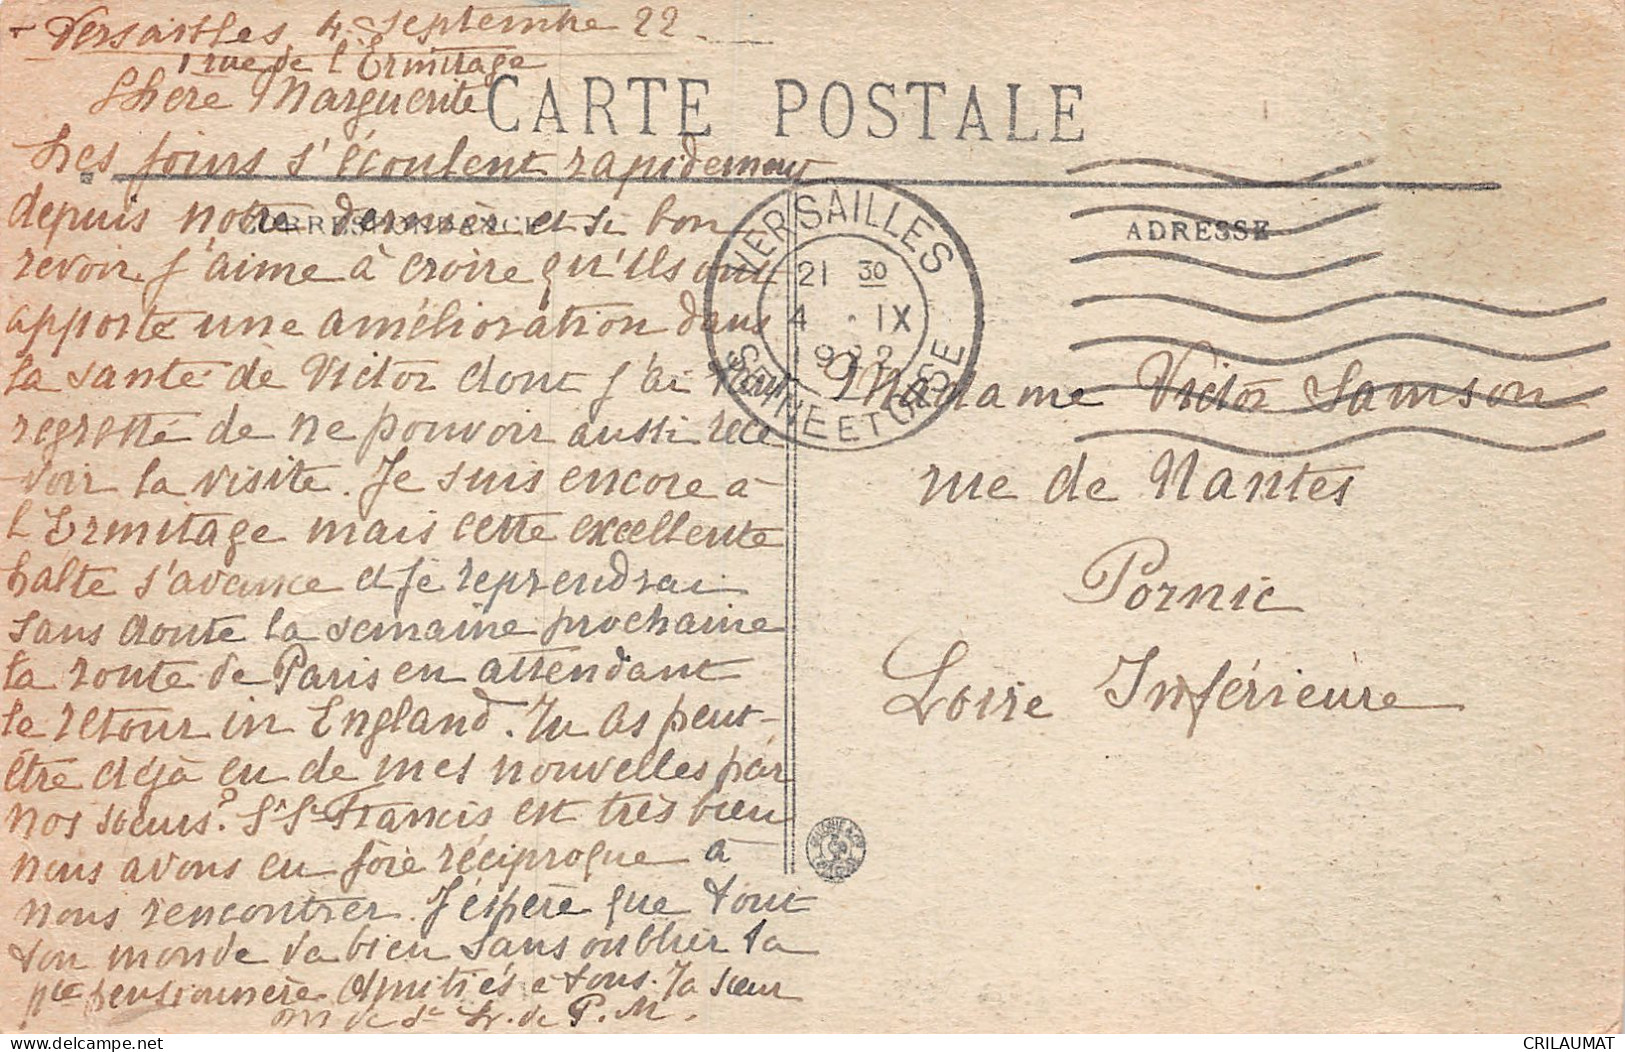 Versailles, 4 Septembre 22
1 rue de l'Ermitage
Chère Marguerite
CARTE POSTALE
Les jours s'écoulent rapidement
depuis notre dernier et si bon
CORRESPONDANCE
ADRESSE
revoir. J'aime à croire qu'ils ont
apporté une amélioration dans
la santé de Victor dont j'ai tant
regretté de ne pouvoir aussi rece
voir la visite. Je suis encore à
l'Ermitage mais cette excellente
halte s'avance et je reprendrai
sans doute la semaine prochaine
la route de Paris en attendant
le retour in England. Tu as peut-
être déjà eu de mes nouvelles par
nos sœurs? Sr St Francis est très bien
nous avons eu joie réciproque à
nous rencontrer. J'espère que tout
ton monde va bien sans oublier la
pte pensionnère Amitiés à tous. Ta sœur
M. de St de P. M.
VERSAILLES
21 30
4 . IX
1922
SEINE ET OISE
Madame Victor Samson
rue de Nantes
Pornic
Loire Inférieure
CRILAUMAT